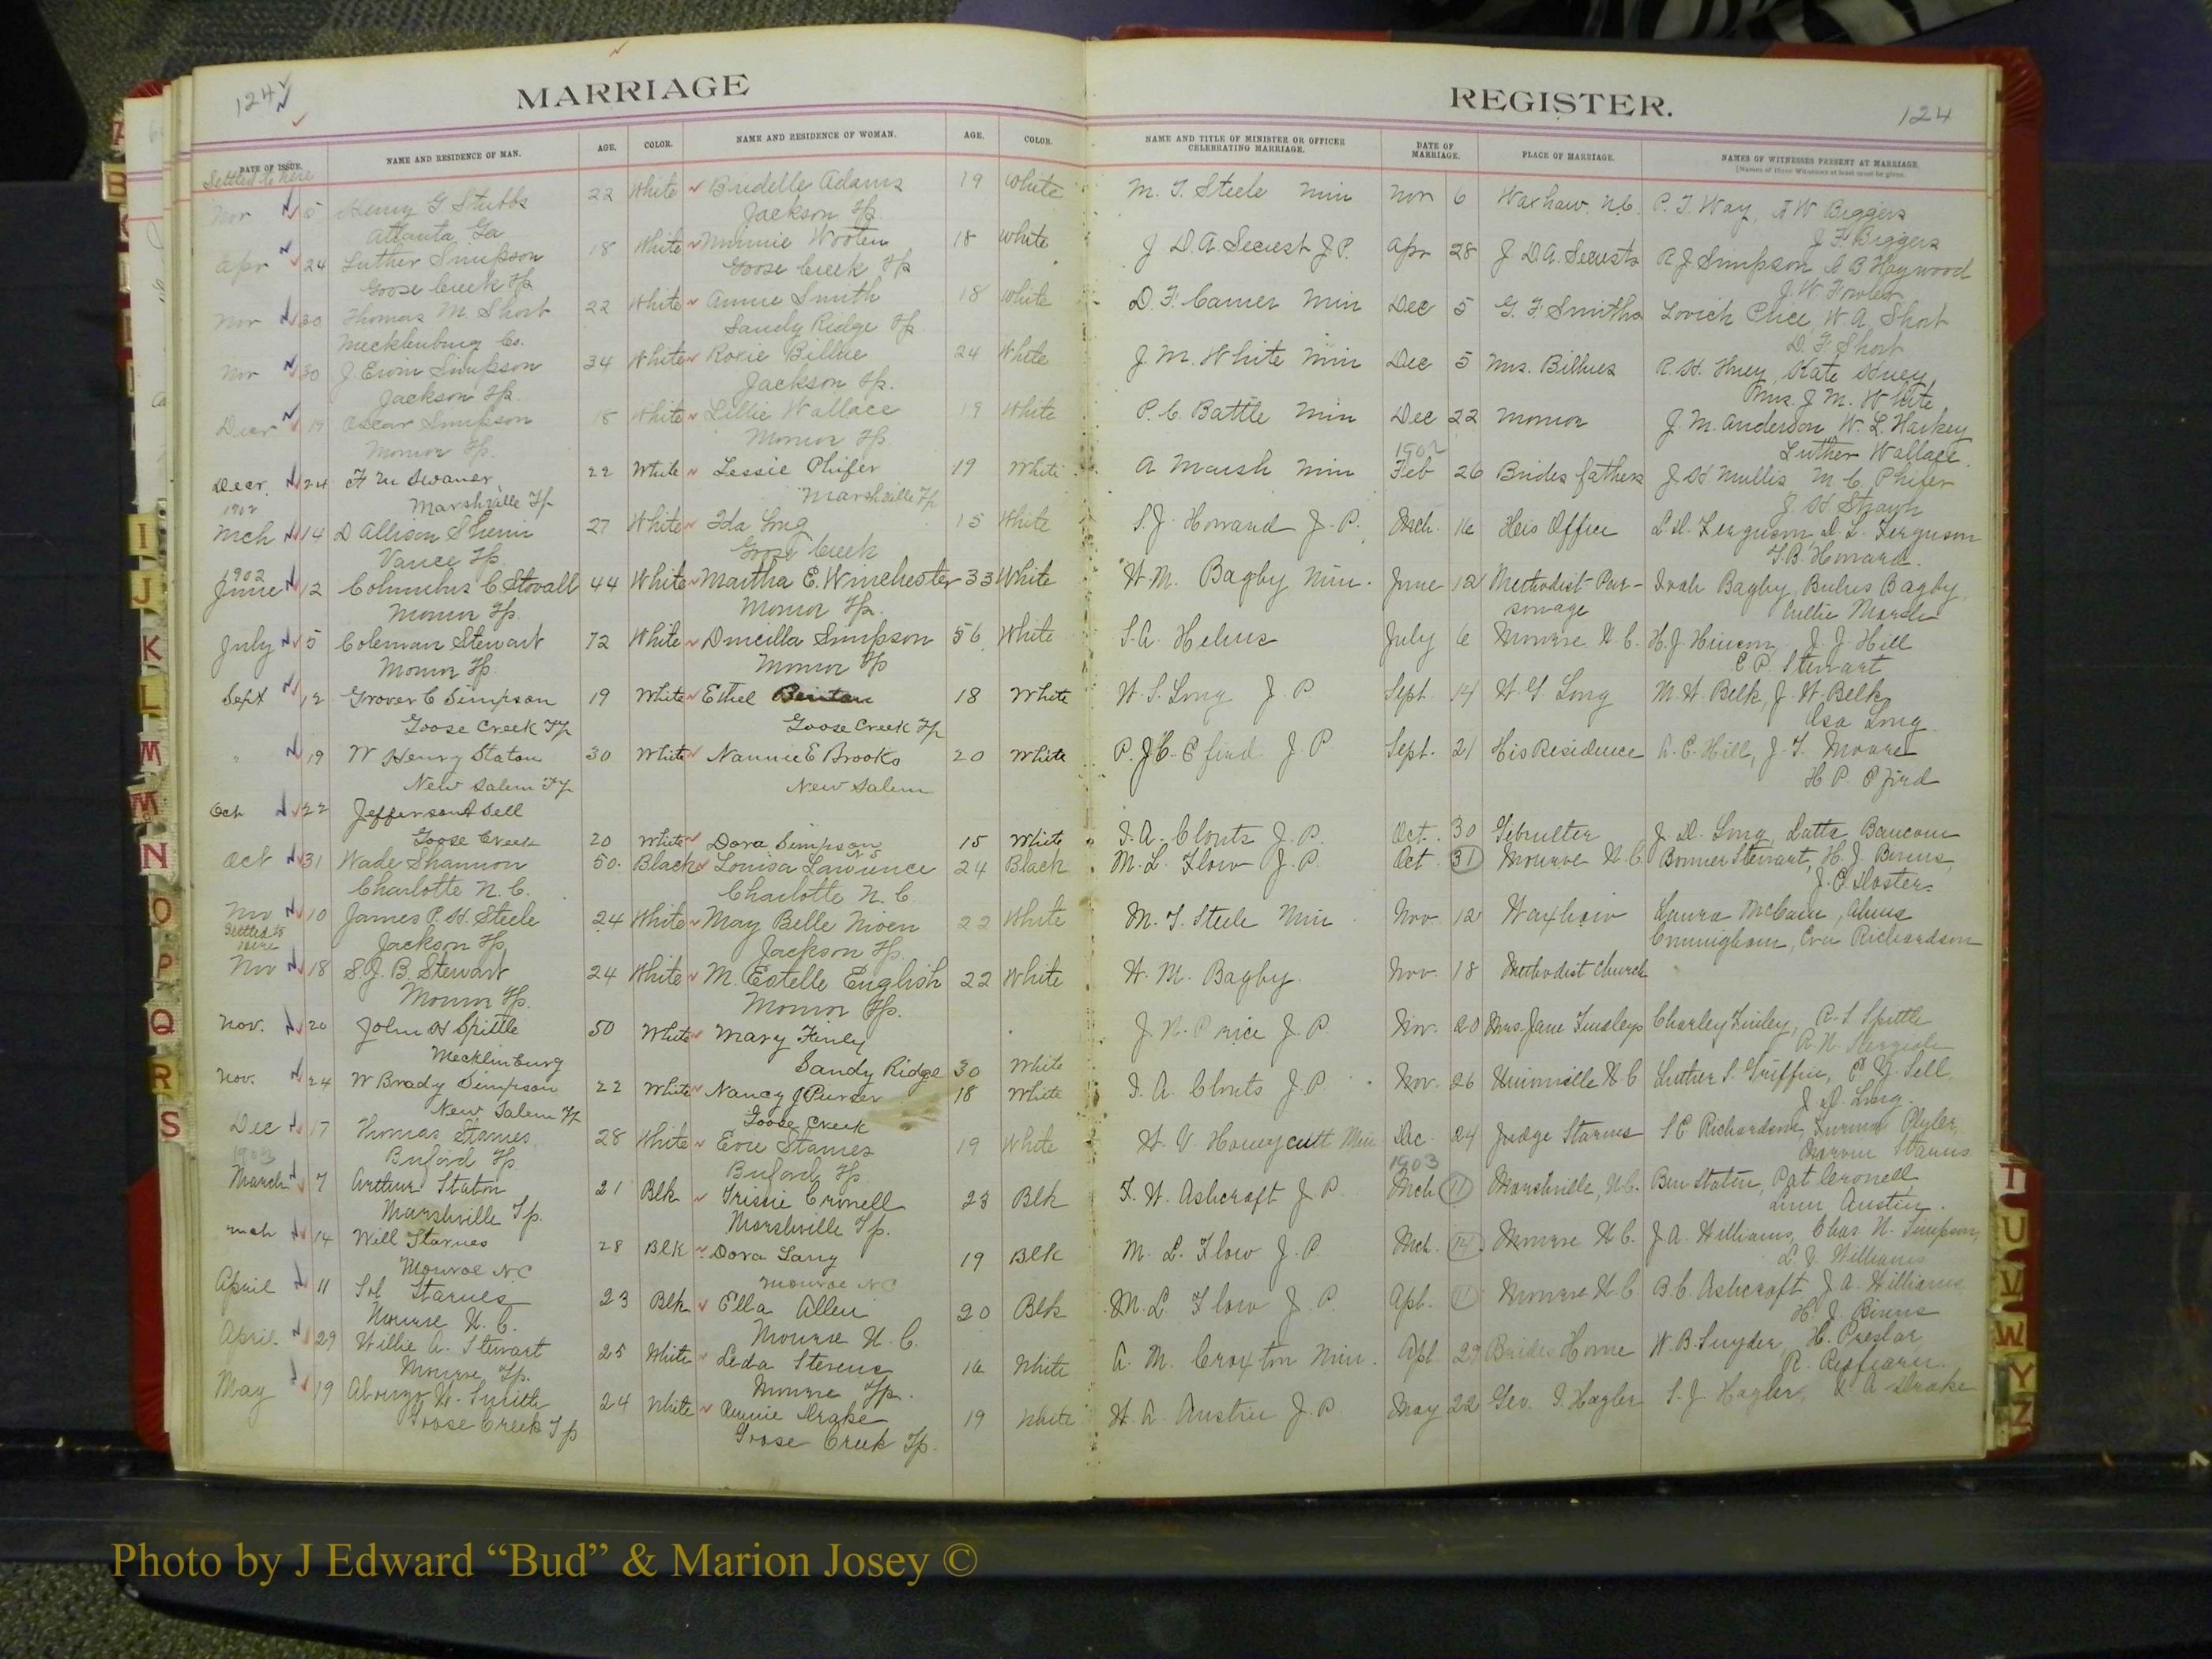 124
MARRIAGE
REGISTER.
124
DATE OF ISSUE. NAME AND RESIDENCE OF MAN. AGE. COLOR. NAME AND RESIDENCE OF WOMAN. AGE. COLOR. NAME AND TITLE OF MINISTER OR OFFICER CELEBRATING MARRIAGE. DATE OF MARRIAGE. PLACE OF MARRIAGE. NAMES OF WITNESSES PRESENT AT MARRIAGE
Settled to here
Nov 5 Henry G Stubbs 22 White Budelle Adams 19 White M. T. Steele Min Nov 6 Waxhaw. N.C. P. T. Way, A W Biggers
Atlanta Ga Jackson Tp. J F Biggers
Apr 24 Luther Simpson 18 White Minnie Wooten 18 White J D. A. Secrest J P. Apr 28 J D. A. Secrests A J Simpson, C B Haywood
Goose Creek Tp Goose Creek Tp J. W. Fowler
Nov 30 Thomas M. Short 22 White Annie Smith 18 White D. F. Carver Min Dec 5 G. F. Smiths Lovich Price, W. A. Short
Mecklenburg Co. Sandy Ridge Tp. D. F. Short
Nov 30 J. Ervin Simpson 34 White Roxie Billue 24 White J M. White Min Dec 5 Mrs. Billues R. H. Huey, Kate Huey,
Jackson Tp. Jackson Tp. Mrs. J. M. White
Decr 19 Oscar Simpson 18 White Lillie Wallace 19 White P. C. Battle Min Dec 22 Monroe J. M. Anderson W. L. Harkey
Monroe Tp. Monroe Tp. Luther Wallace
1902
Decr. 24 F M Swaner 22 White Lessie Phifer 19 White A Marsh Min Feb 26 Brides fathers J H Mullis M. C. Phifer
Marshville Tp Marshville Tp
1902
Mch 14 D Allison Sherin 27 White Ida Long 15 White S. J. Howard J. P. Mch. 16 His Office L. H. Ferguson, D. L. Ferguson
Vance Tp. Goose Creek T. B. Howard
1902
June 12 Columbus C. Stovall 44 White Martha E. Winchester 33 White W. M. Bagby Min. June 12 Methodist Par- Bagby, Bulus Bagby
Monroe Tp. Monroe Tp. sonage Marsh
July 5 Coleman Stewart 72 White Drucilla Simpson 56 White S. A. Helms July 6 Monroe N. C. H. J. Hinson, J. J. Hill
Monroe Tp. Monroe Tp C. P. Stewart
Sept 12 Grover C Simpson 19 White Ethel Benton 18 White W. S. Long J. P. Sept. 14 W. S. Long M. W. Belk, J. W. Belk
Goose Creek Tp Goose Creek Tp Asa Long
" 19 W Henry Staton 30 White Nannie E Brooks 20 White P. J. C. Efird J. P Sept. 21 His Residence A. C. Hill, J. T. Moore
New Salem Tp New Salem H P. Efird
Oct 22 Jefferson A Sell
Goose Creek 20 White Dora Simpson 15 White I. A. Clonts J. P. Oct. 30 Gibralter J. D. Long, Latta Baucom
Oct 31 Wade Shannon 50. Black Louisa Lawrence 24 Black M. L. Flow J. P. Oct 31 Monroe N. C. Bonner Stewart, H. J. Bivens,
Charlotte N. C. Charlotte N. C.
Nov 10 James P. H. Steele 24 White May Belle Niven 22 White M. T. Steele Min Nov. 12 Waxhaw Laura McCain,
Settled to here Jackson Tp Jackson Tp. Cunningham, Eva Richardson
Nov 18 S. J. B. Stewart 24 White M. Estelle English 22 White W. M. Bagby. Nov. 18 Methodist Church
Monroe Tp. Monroe Tp.
Nov. 20 John H Spittle 50 White Mary Finly J. N. Price J. P. Nov. 20 Mrs. Jane Finleys Charley Finley, R. S. Spittle
Mecklinburg Sandy Ridge 30 White
Nov. 24 W Brady Simpson 22 White Nancy J Purser 18 White I. A. Clonts J. P. Nov. 26 Unionville N. C Luther S. Griffin, E. Y. Sell
New Salem Tp Goose Creek J. D. Long.
Dec 17 Thomas Starnes 28 White Eva Starnes 19 White W. V. Honeycutt Min Dec. 24 Judge Starns S C Richardson, Plyler,
Buford Tp Buford Tp. Starns
1903 1903
March 7 Arthur Staton 21 Blk Trissie Cronell 23 Blk F. W. Ashcraft J. P. Mch 11 Marshville, N.C. Ben Staton, Pat Cronell,
Marshville Tp. Marshville Tp. Austin.
Mch 14 Will Starnes 28 Blk Dora Lany 19 Blk M. L. Flow J. P. Mch. 14 Monroe N. C. J. A. Williams, Chas N. Simpson,
Monroe N.C Monroe N.C Williams
April 11 Sol Starnes 23 Blk Ella Allen 20 Blk M. L. Flow J. P. Apl. 11 Monroe N. C B. C. Ashcraft J. A. Williams
Monroe N. C. Monroe N. C. H. J. Bivens
April 29 Willie A. Stewart 25 White Leda Stevens 16 White A. M. Croxton Min. Apl 29 Brides Home W. B. Snyder, H. Preslar,
Monroe Tp. Monroe Tp.
May 19 Alonzo W. Smith 24 White Annie Drake 19 White W. A. Austin J. P. May 22 Geo. I. Hagler S. J. Hagler, A Drake
Goose Creek Tp Goose Creek Tp.
A
B
I
J
K
L
M
M
N
O
P
Q
R
S
T
U
V
W
Y
Z
Photo by J Edward “Bud” & Marion Josey ©